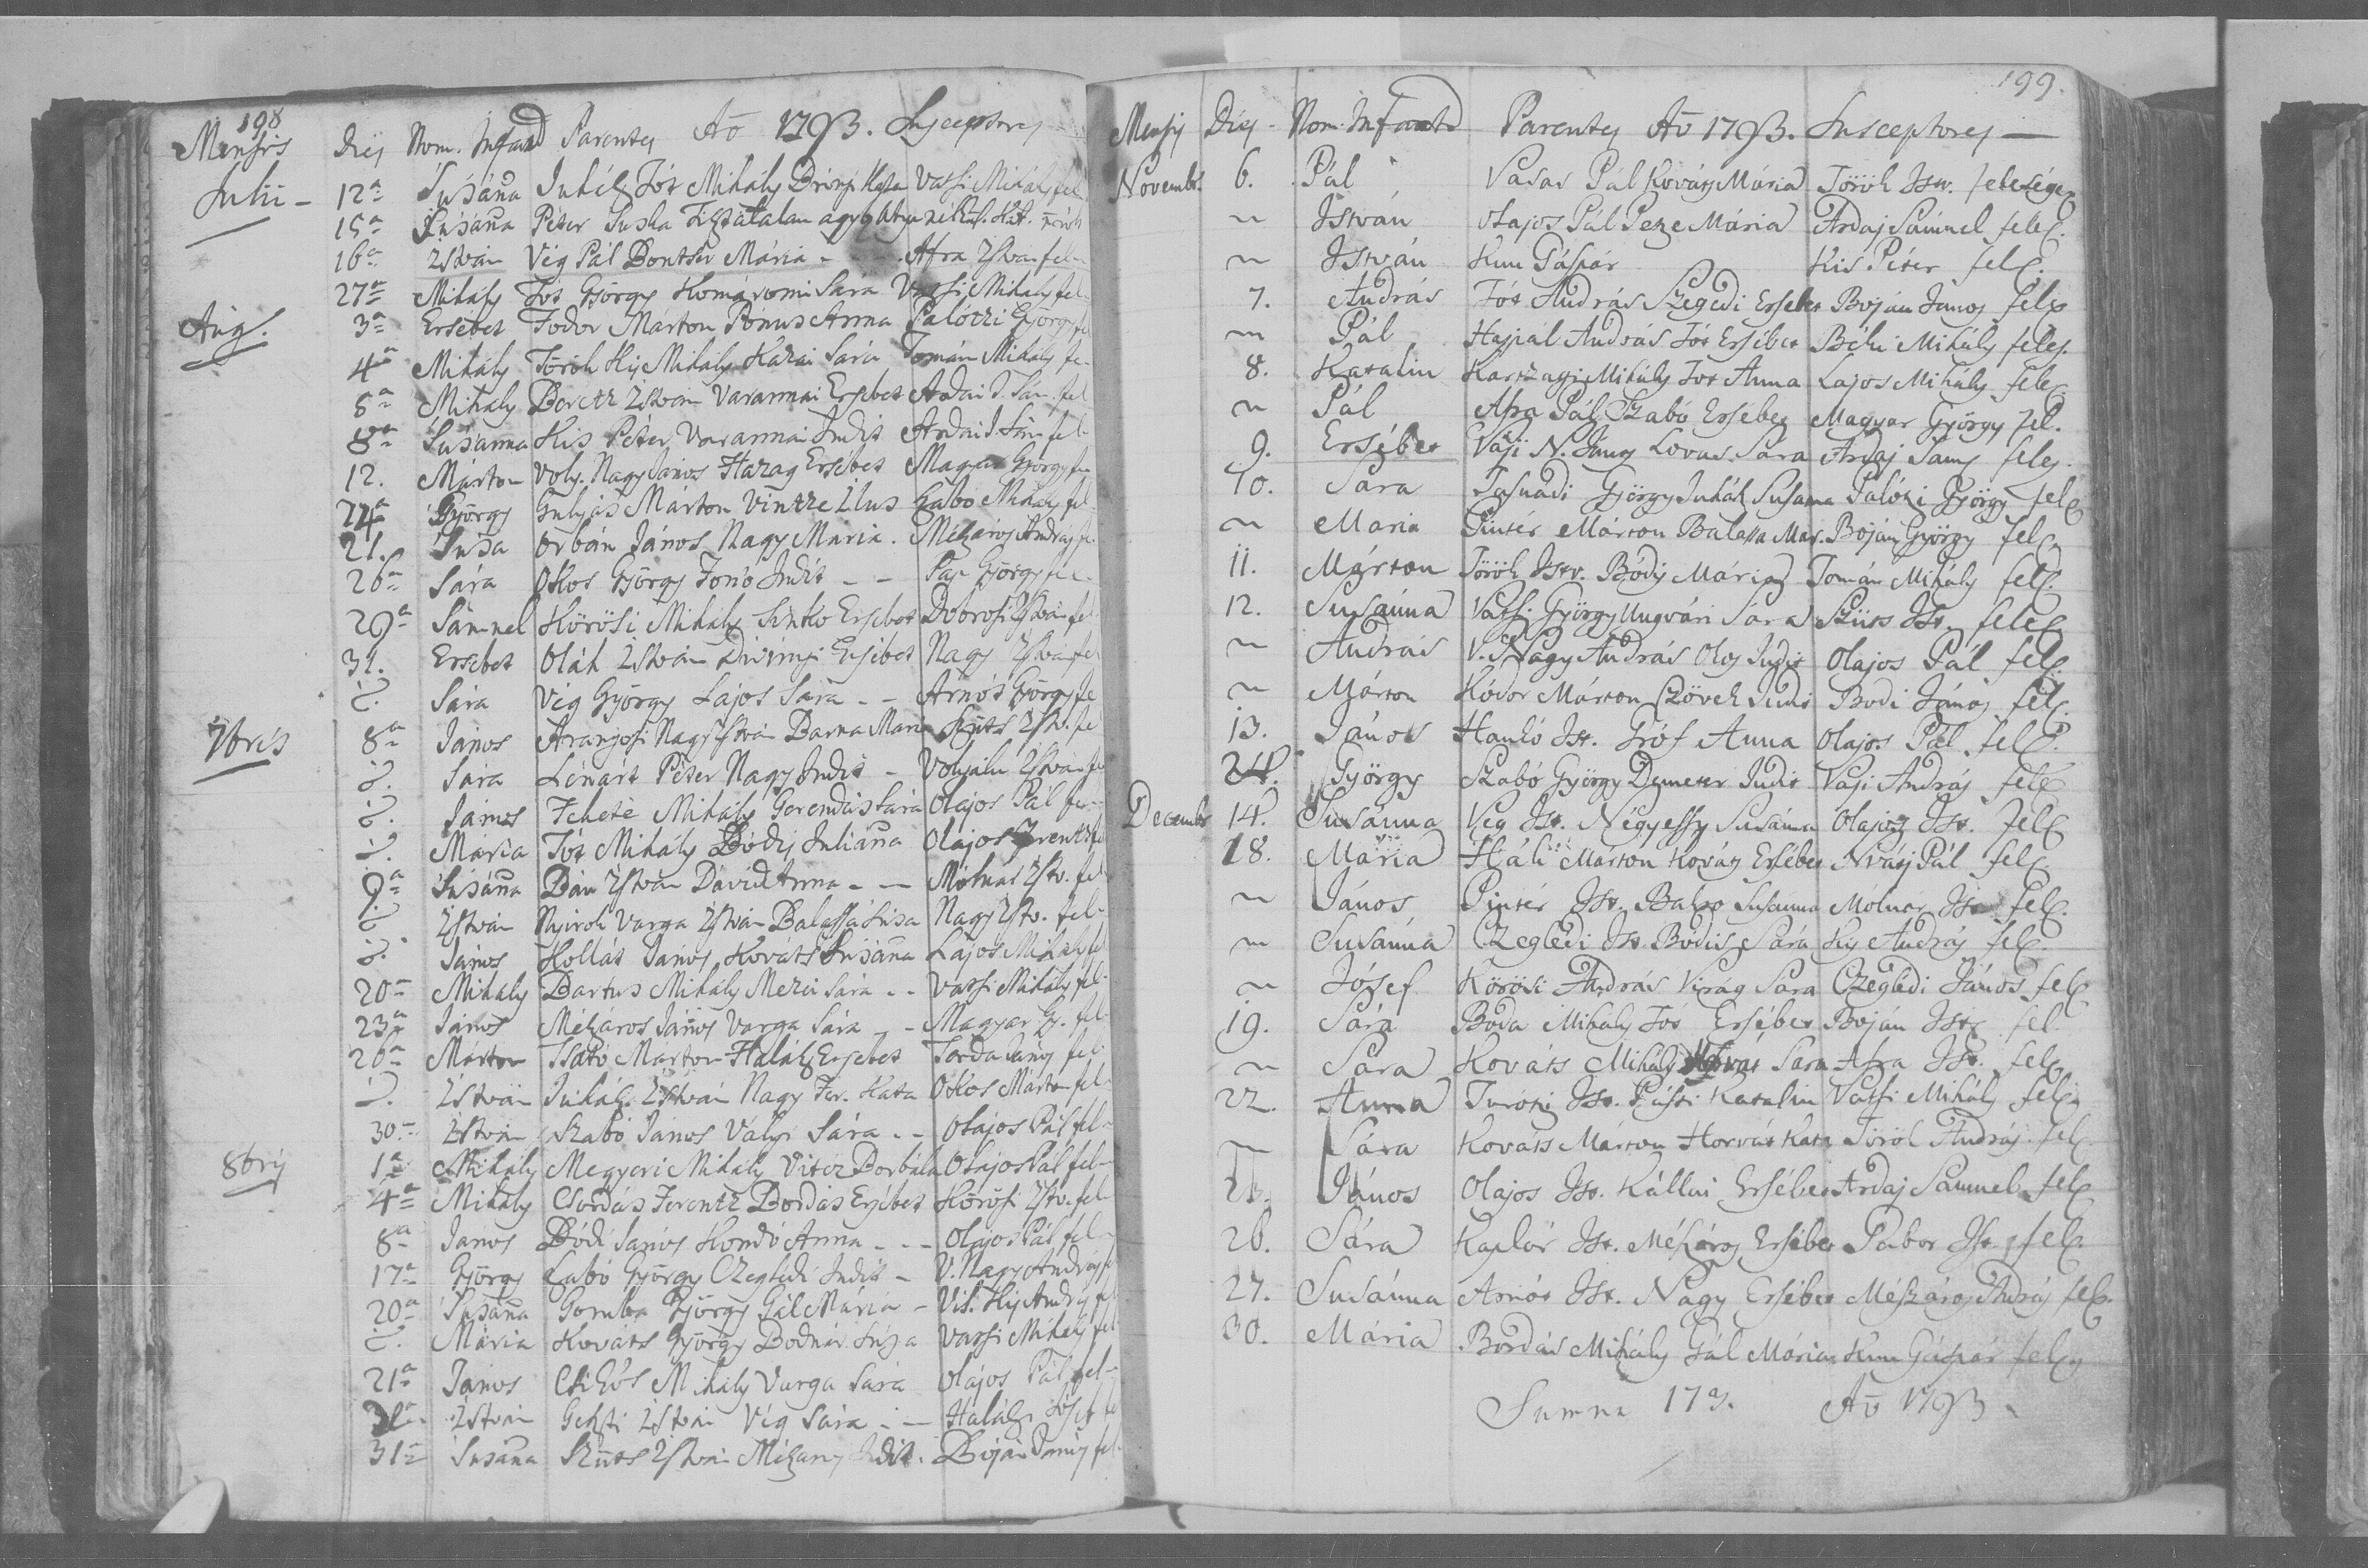 198
Mensis Dies Nom. Infant Parentes Aō 1793. Susceptores
Julii - 12a Susána Juhász Tót Mihály Kata Vassi Mihály fel
15a Susána Péter Suska
16a Istvan Vég Pál Bontsér Mária - Afra Istvan fel
27a Mihály Tót György Komáromi Sára Vassi Mihály fel
Aug. 3a Ersébet Fodor Márton Pónus Anna Palótzi György fe
4a Mihály Török Kis Mihály Kazai Sára Tomán Mihály fe
8a Mihály Boretz Istvan Varannai Ersebet Ardai Sam. fel
8a Susánna Kis Péter Varannai Judit Ardai Sám fel
12. Márton Nagy János Harag Ersébet Magyar György fe
24a György Gulyás Márton Vintze Ilus Szabo Mihály fel
21. Susa Orbán János Nagy Mária. Mészáros András fe
26a Sára Okos György Fonó Judit - - Pap György fe
29a Sámuel Körösi Mihály Sinko Ersebet Dobrosi István fel
31. Ersebet Oláh István Divinyi Ersébet Nagy István fe
d. Sára Vég György Lajos Sára - - Arnót György fe
7bris 8a János Aranyosi Nagy István Barna Mari Szüts Istv. fe
d. Sára Lénárt Péter Nagy Judit - István fe
d. János Fekete Mihály Gerendás Sára Olajos Pál fe
d. Mária Tót Mihály Bódis Juliána Olajos Ferentz fe
9a Susána Bán István Dávid Anna - - Molnár Istv. fel
d. István Nyirok Varga István Balassa Susa Nagy Istv. fel
d. János Kollát János Kováts Susána Lajos Mihály fe
20a Mihály Bartus Mihály Mezei Sára - - Vassi Mihály fel
23a János Mészáros János Varga Sára - Magyar G. fel
26a Márton Tsató Márton Halász Ersebet Torda János fel
d. István Juhász István Nagy Fer. Kata Okos Márton fel
30. István Szabó János Vályi Sára - - Olajos Pál fel
8bris 1a Mihály Megyeri Mihály Vitéz Borbála Olajos Pál fel
4a Mihály Csordás Ferentz Bordás Ersébet Körösi Istv. fel
8a János Bódi János Kondó Anna - - - Olajos Pál fel
17a György Szabó György Czeglédi Judit - V. Nagy András fe
20a Susána Gomba György Gál Mária - Kis András fel
d. Mária Kováts György Bodnár Susa Vassi Mihály fel
21a János Csikós Mihály Varga Sára Olajos Pál fel
István Geszti István Vég Sára - - Halász Jósef fe
31a Susána Szüts István Mészaros Judit. Boján János fel
199.
Mensis Dies - Nom. Infantis Parentes Aō 1793. Susceptores —
Novembr. 6. Pál Vasas Pál Kováts Mária Török Istv. felesége
~ István Olajos Pál Pesze Mária Ardaj Sámuel feles.
~ István Kun Gáspár Kis Péter feles.
7. András Tót András Szegedi Ersébet Boján János feles
~ Pál Hajpál András Tót Ersébet Béki Mihály feles.
8. Katalin Kartzagi Mihály Tót Anna Lajos Mihály feles
~ Pál Afra Pál Szabó Ersébet Magyar György fel.
9. Ersébet Vaji N. János Lovas Sára Ardaj Sam feles.
10. Sára Tasnádi György Juhász Susana Palótzi György feles
~ Maria Pintér Márton Balassa Mar. Boján György feles
11. Márton Török Istv. Bódis Mária Tomán Mihály feles.
12. Susánna Vassi György Ungvári Sára Szüts Ist. feles
~ András V. Nagy András Olos Judit Olajos Pál feles.
~ Márton Kódor Márton Czövek Judit Bodi János feles.
13. János Hankó Ist. Gróf Anna Olajos Pál feles.
24. György Szabó György Demeter Judit Vaji András feles
Decembr 14. Susánna Vég Ist. Négyessy Susánna Olajos Ist. feles
18. Mária Háli Márton Kováts Ersébet Pál feles.
~ János Pintér Ist. Susánna Molnar Ist feles.
~ Susánna Czeglédi Ist. Bódis Sára Kis András feles.
~ Jósef Körösi András Virág Sára Czeglédi János feles
19. Sára Boda Mihály Tót Ersébet Boján Ist fel.
~ Sára Kováts Mihály Sára Afra Ist. feles
22. Anna Turotzi Ist. Pásti Katalin Vassi Mihály feles
~ Sára Kováts Márton Horvát Kata Török András feles
23. János Olajos Ist. Kállai Ersébet Ardaj Samuel feles
26. Sára Kaplár Ist. Mészáros Ersébet Pabor Ist. feles
27. Susánna Arnót Ist. Nagy Ersébet Mészáros András feles.
30. Mária Bordás Mihály Gál Mária Kun Gáspár feles
Summa 173. Aō 1793